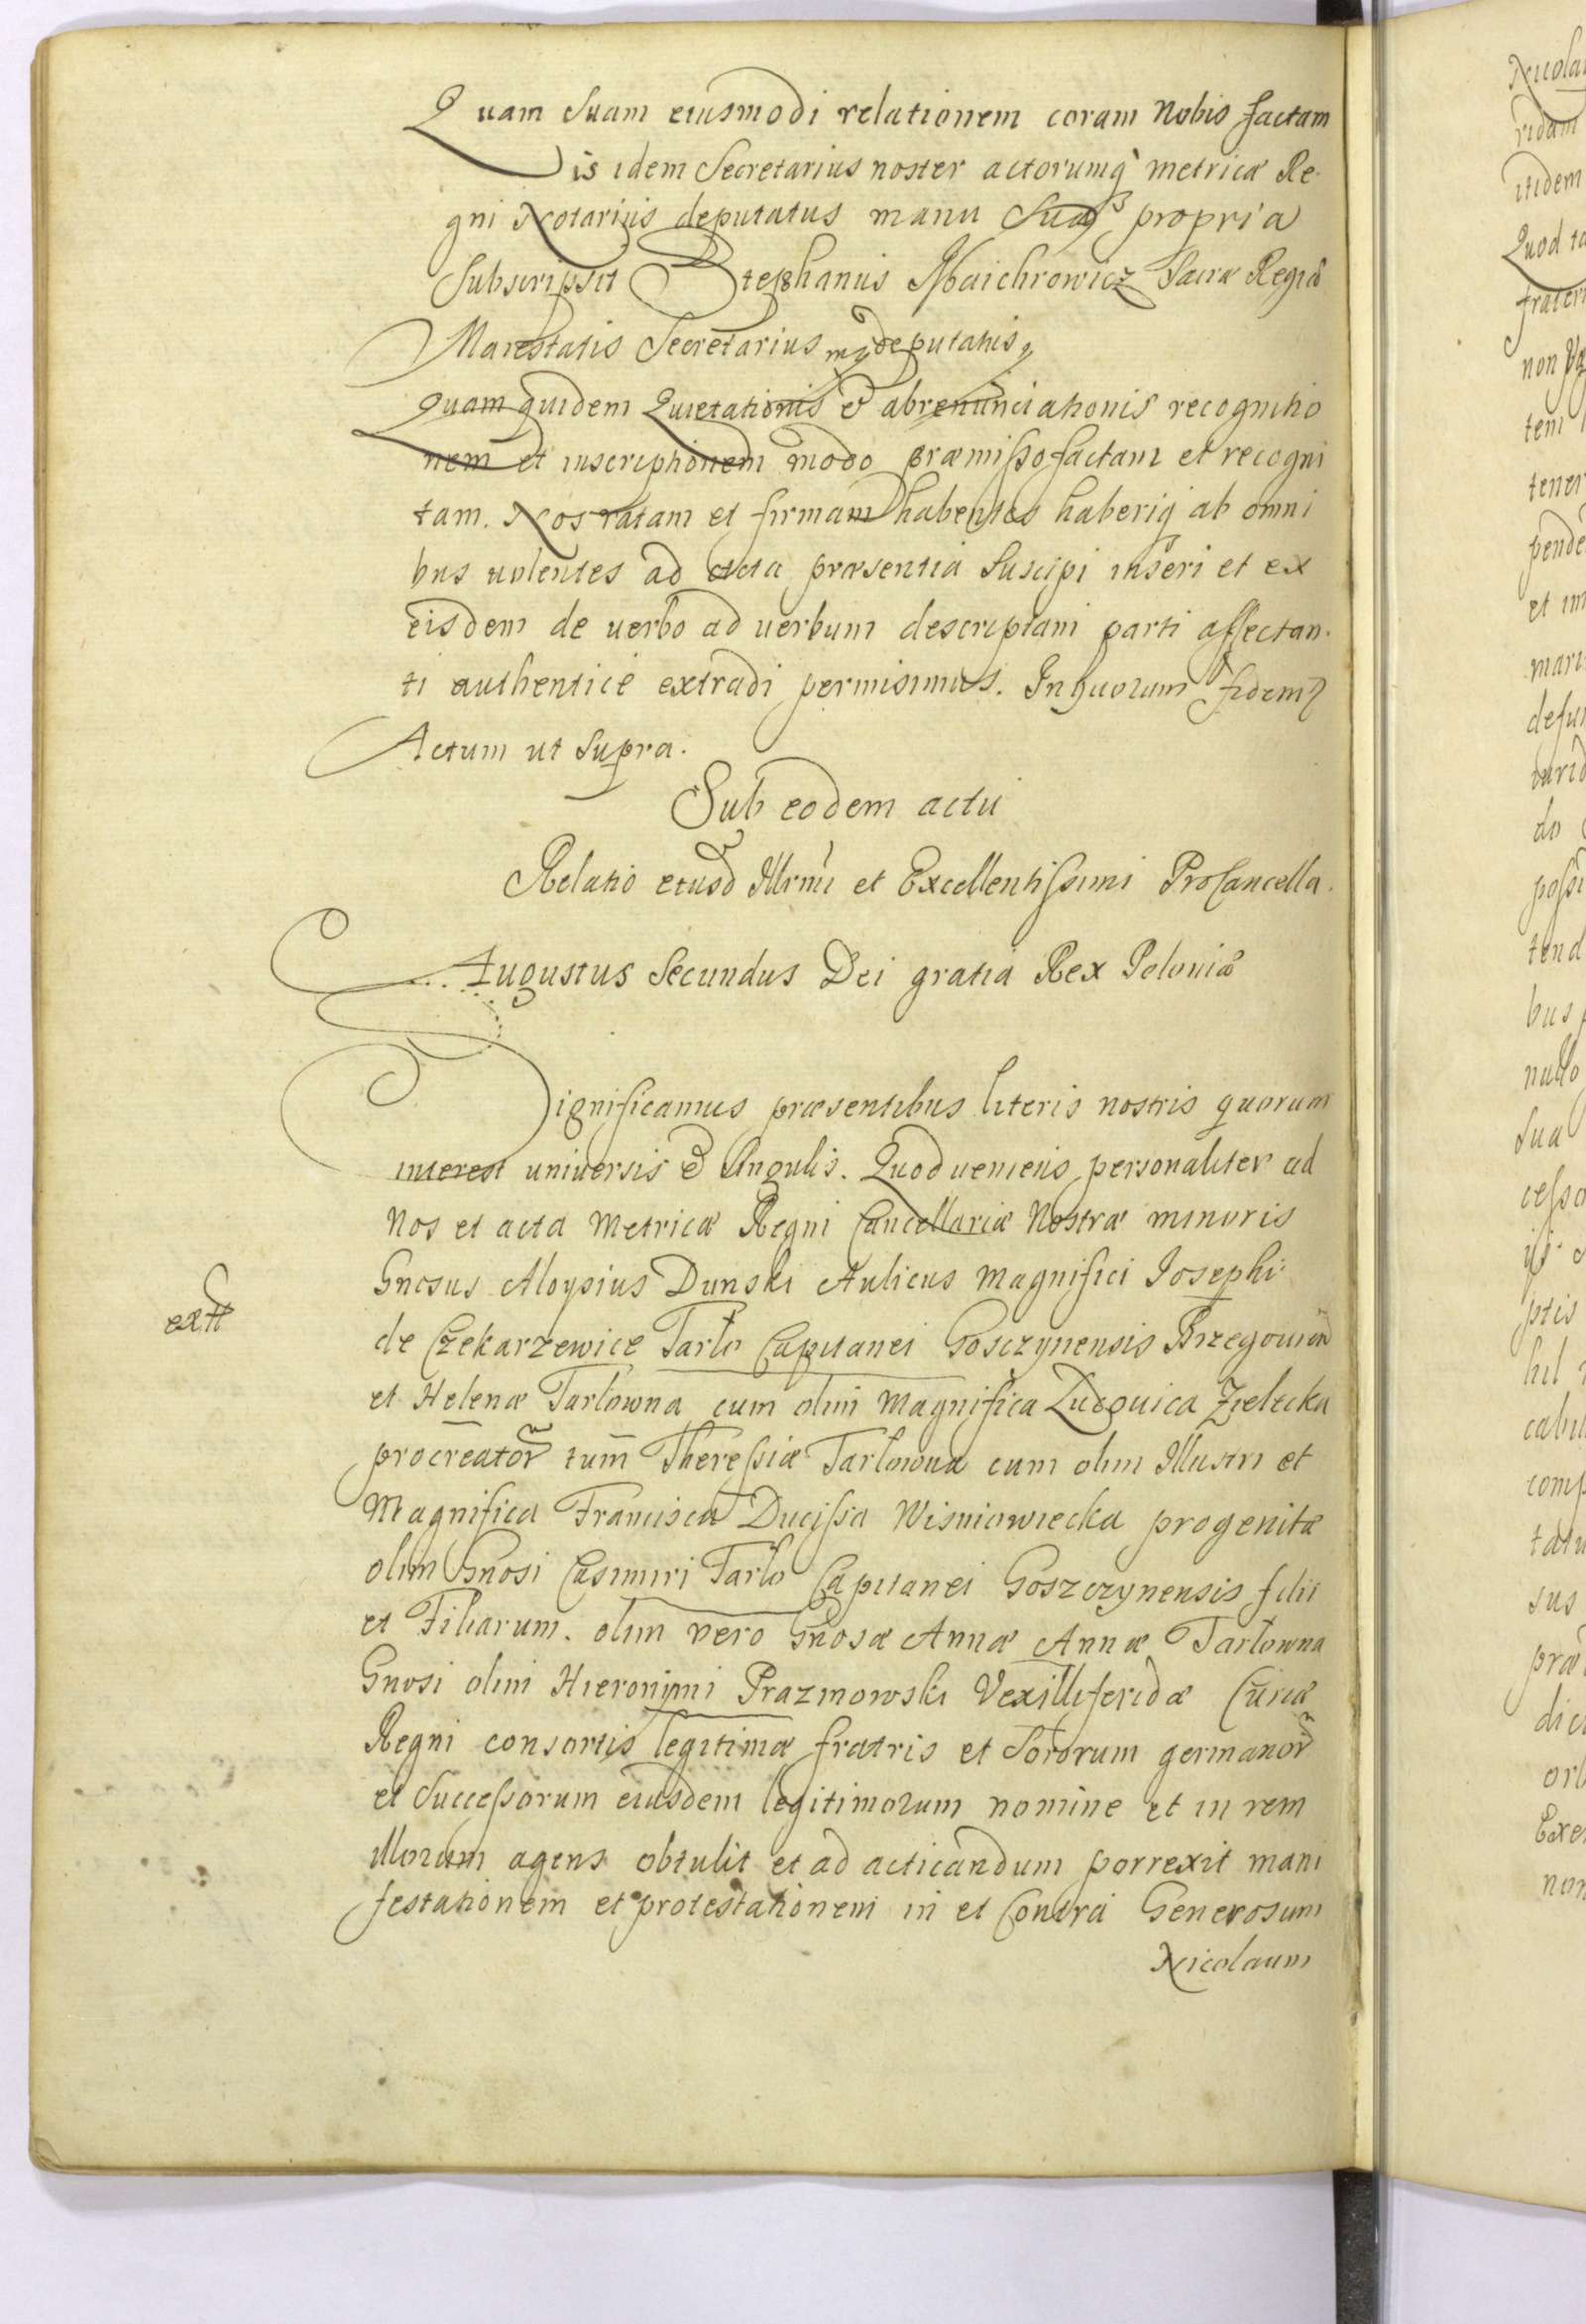 Quam Suam eiusmodi relationem coram Nobis factam
is idem Secretarius noster actorumq́ metricæ Re-
gni Notarius deputatus manu Sua propria
Subscripsit Stephanus Sacræ Regiæ
Maiestatis Secretarius mp deputatus
Quam quidem Quietationis & abrenunciationis recognitio
nem et inscriptionem modo præmisso factam et recogni
tam. Nos ratam et firmam habentes haberiq́ ab omni
bus uolentes ad acta præsentia Suscipi inseri et ex
eisdem de uerbo ad uerbum descriptam parti affectan-
ti authenticè extradi permisimus. In quorum fidem
Actum ut Supra.
Sub eodem actu
Relatio eiusd Illrmi et Excellentissimi ProCancella.
Augustus Secundus Dei gratia Rex Poloniæ
Significamus præsentibus literis nostris quorum
interest universis & Singulis. Quod ueniens personaliter ad
Nos et acta Metricæ Regni Cancellariæ Nostræ minoris
Gnosus Aloysius Dunski Aulicus Magnifici Josephi
extt
de Czekarzewice Tarło Capitanei Gosczynensis
et Helenæ Tarłowna cum olim Magnifica Ludouica Zielecka
procreator tum Theressiæ Tarłowna cum olim Illustri et
Magnifica Francisca Ducissa Wisniowiecka progenitæ
olim Gnosi Casimiri Tarło Capitanei Goszczynensis filii
et Filiarum. olim vero Gnosæ Annæ Annæ Tarłowna
Gnosi olim Hieronimi Prazmowski Vexilliferidæ Curiæ
Regni consortis legitimæ fratris et Sororum germanor
et Successorum eiusdem legitimorum nomine et in rem
illorum agens obtulit et ad acticandum porrexit mani
festationem et protestationem in et Contra Generosum
Nicolaum